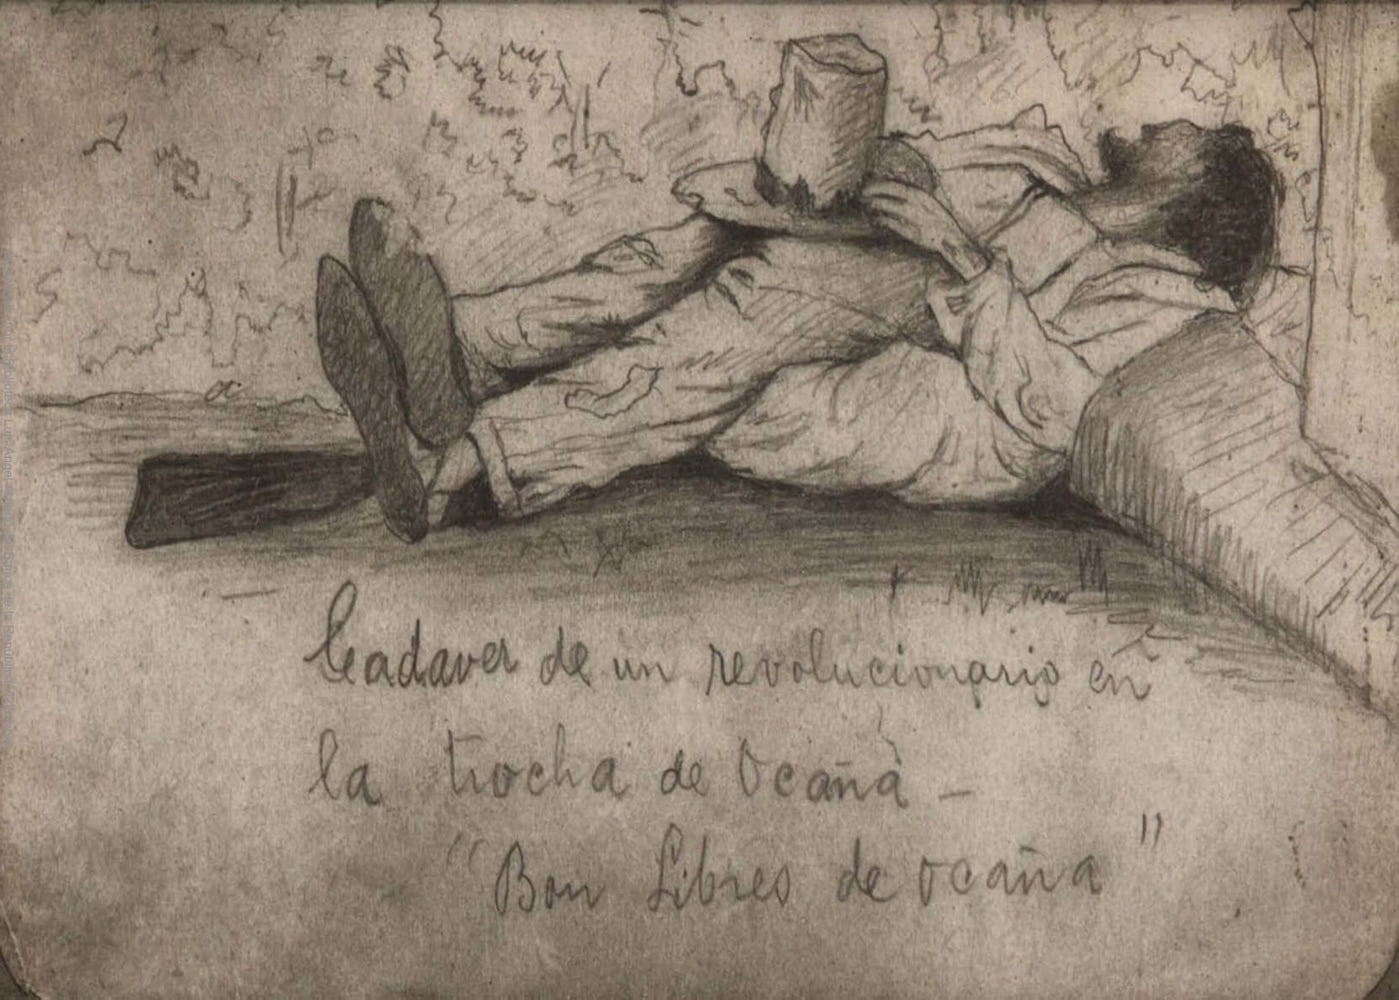 Cadaver de un revolucionario en
la trocha de Ocaña -
"Bon Libres de Ocaña"